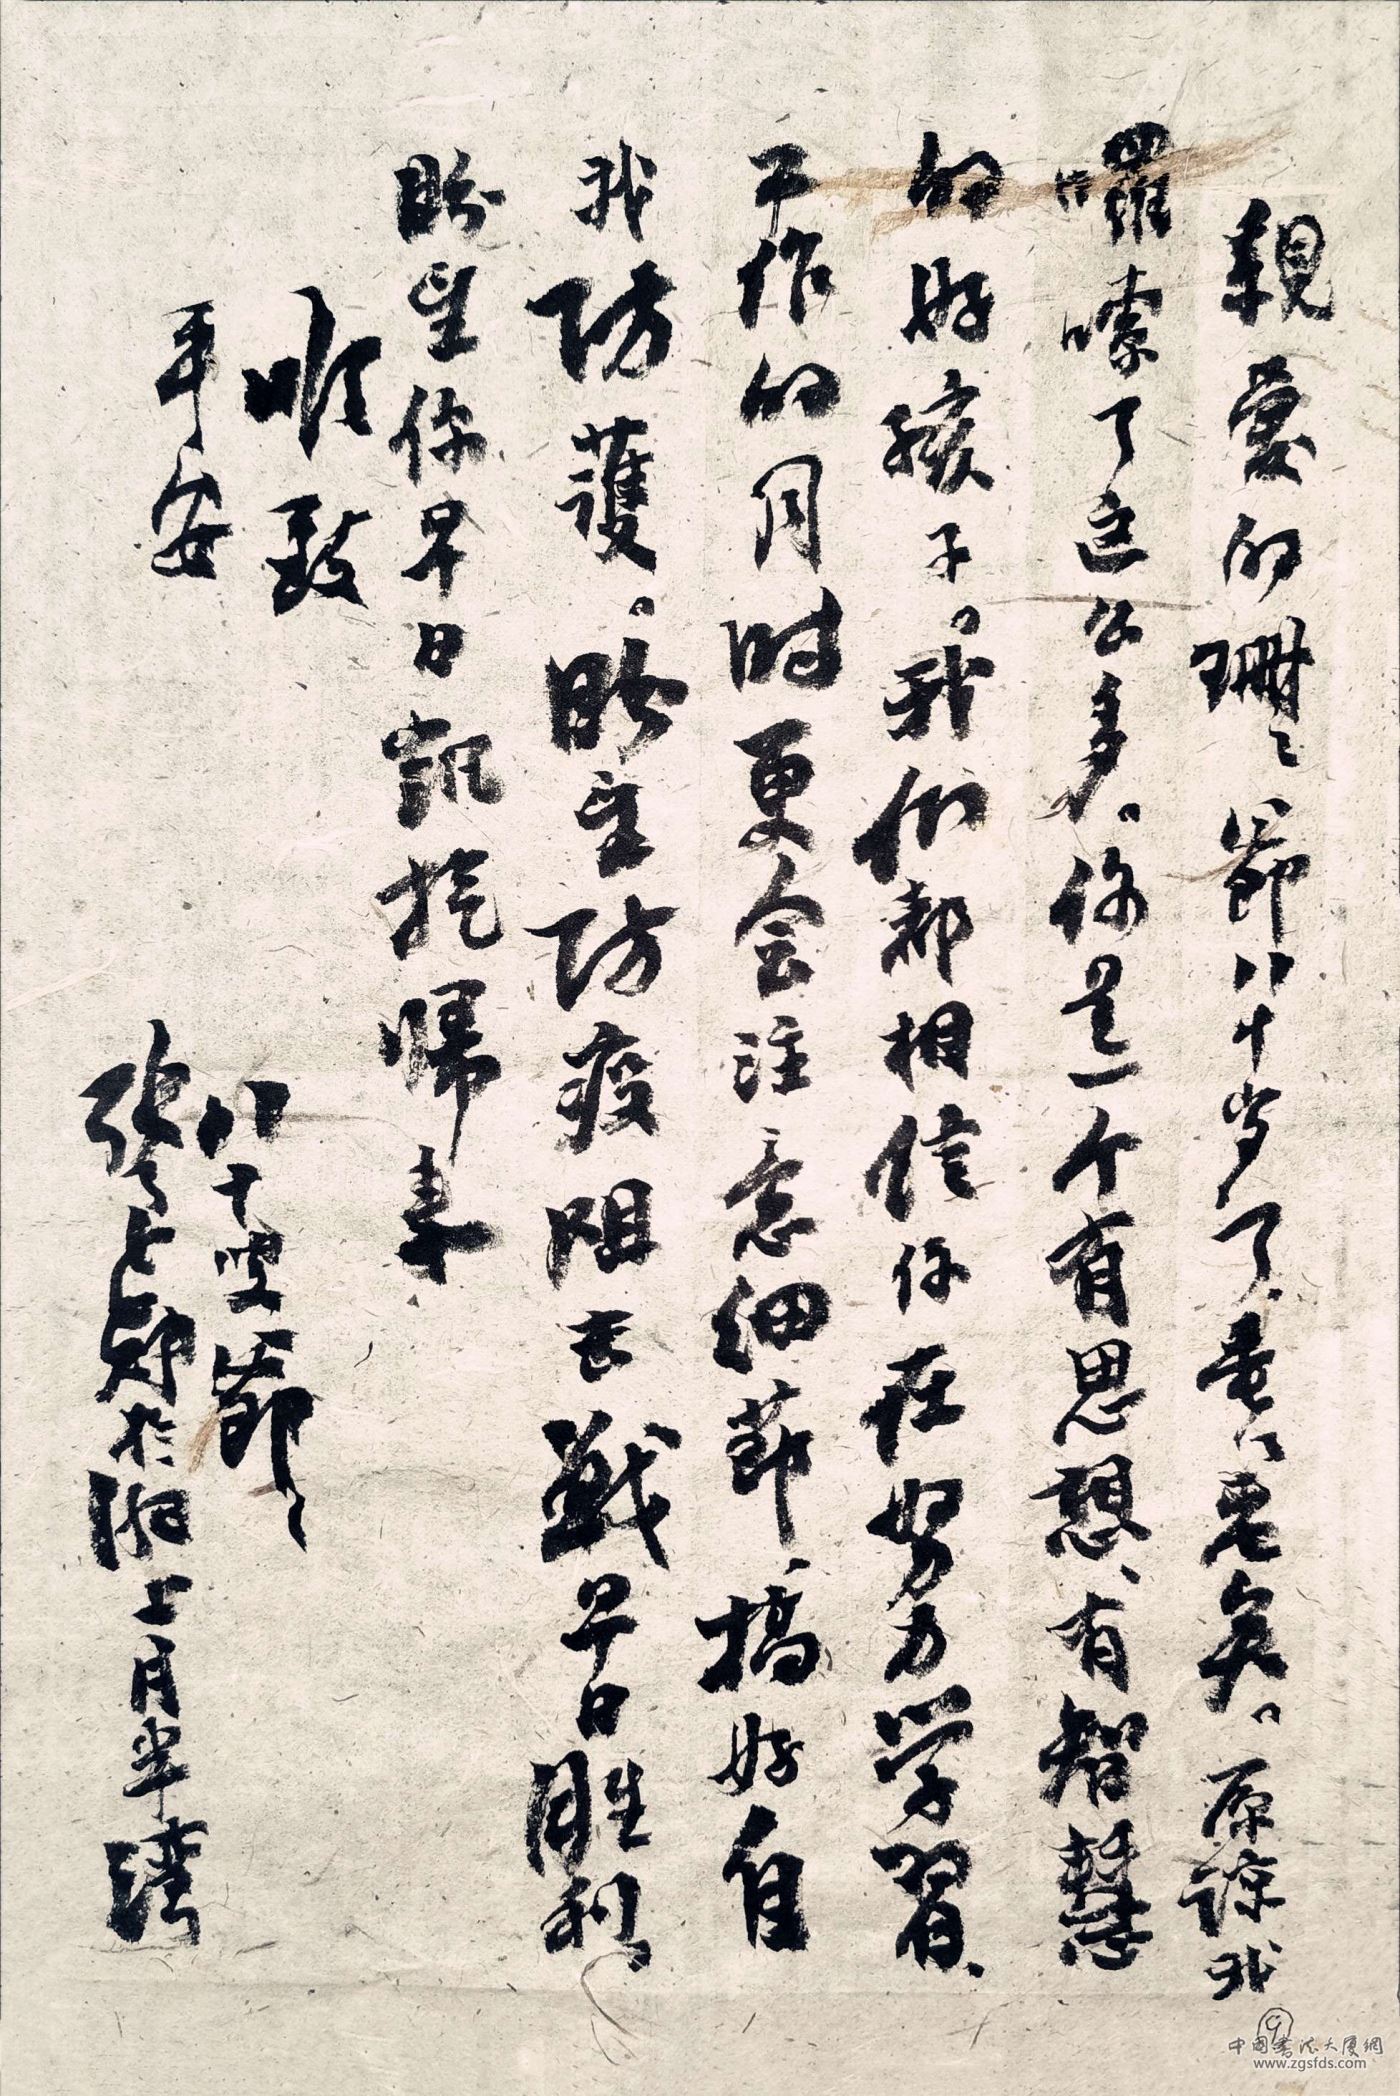 親爱的珊珊：爺八十岁了，垂垂老矣。原諒我
囉嗦了这么多。你是一个有思想、有智慧
的好孩子。我们都相信你在努力学習、
工作的同时更会注意细節，搞好自
我防護。盼望防疫阻击戰早日胜利，
盼望你早日凱旋歸来。
顺致
平安
八十叟爺爺
張七郎於湘上月半湾
⑨
中国书法大厦網
www.zgsfds.com